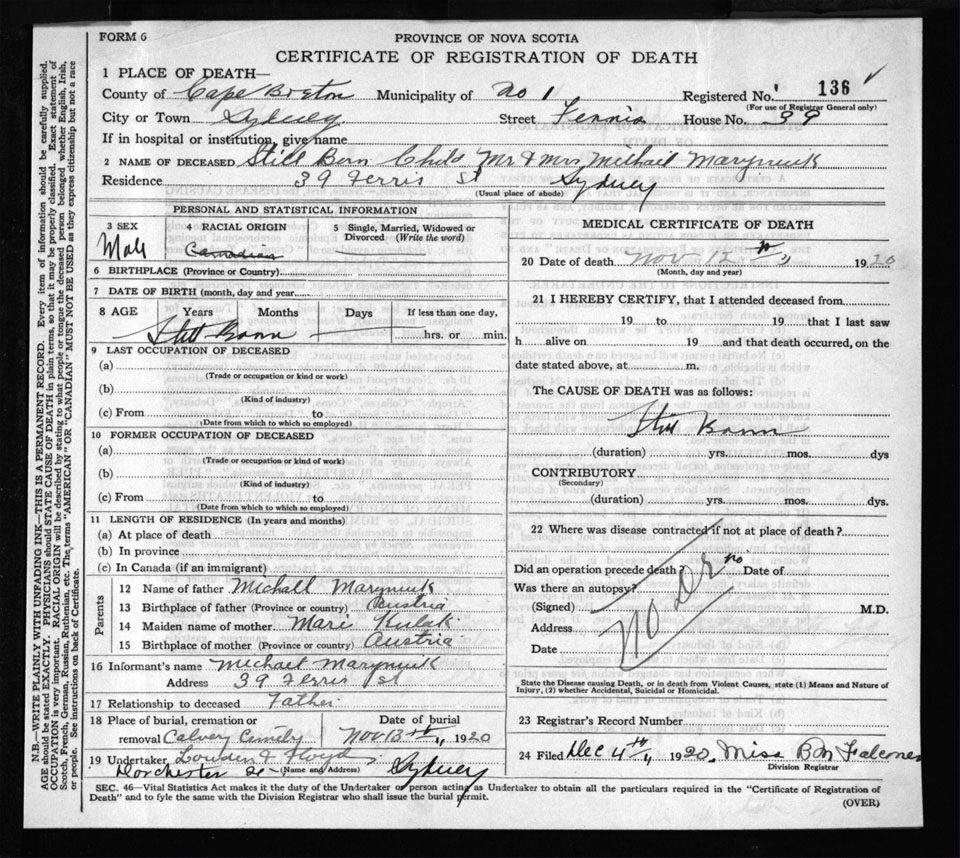 FORM 6
PROVINCE OF NOVA SCOTIA
CERTIFICATE OF REGISTRATION OF DEATH
1 PLACE OF DEATH—
County of Cape Breton Municipality of No 1 Registered No. 136
(For use of Registrar General only)
City or Town Sydney Street Ferris House No. 39
If in hospital or institution, give name
2 NAME OF DECEASED Still Born Child Mr & Mrs Michail Marynuik
Residence 39 Ferris St Sydney
(Usual place of abode)
PERSONAL AND STATISTICAL INFORMATION
3 SEX 4 RACIAL ORIGIN 5 Single, Married, Widowed or Divorced (Write the word)
Male Canadian
6 BIRTHPLACE (Province or Country)
7 DATE OF BIRTH (month, day and year)
8 AGE Years Months Days If less than one day,
Still Born hrs. or min.
9 LAST OCCUPATION OF DECEASED
(a)
(Trade or occupation or kind of work)
(b)
(Kind of industry)
(c) From to
(Date from which to which so employed)
10 FORMER OCCUPATION OF DECEASED
(a)
(Trade or occupation or kind of work)
(b)
(Kind of industry)
(c) From to
(Date from which to which so employed)
11 LENGTH OF RESIDENCE (In years and months)
(a) At place of death
(b) In province
(c) In Canada (if an immigrant)
Parents
12 Name of father Michall Marynuik
13 Birthplace of father (Province or country) Austria
14 Maiden name of mother Mari Kulak
15 Birthplace of mother (Province or country) Austria
16 Informant's name Michael Marynuik
Address 39 Ferris st
17 Relationship to deceased Father
18 Place of burial, cremation or removal Calvery Cemetry Date of burial Nov 13th 1920
19 Undertaker Louden & Floyd
Dorchester St (Name and Address) Sydney
MEDICAL CERTIFICATE OF DEATH
20 Date of death Nov 12 th 1920
(Month, day and year)
21 I HEREBY CERTIFY, that I attended deceased from
19 to 19 that I last saw
h alive on 19 and that death occurred, on the
date stated above, at m.
The CAUSE OF DEATH was as follows:
Still Born
(duration) yrs. mos. dys
CONTRIBUTORY
(Secondary)
(duration) yrs. mos. dys.
22 Where was disease contracted if not at place of death?
Did an operation precede death? no Date of
Was there an autopsy?
No Dr
(Signed) M.D.
Address
Date
State the Disease causing Death, or in death from Violent Causes, state (1) Means and Nature of
Injury, (2) whether Accidental, Suicidal or Homicidal.
23 Registrar's Record Number
24 Filed Dec 4th 1920. Miss B M Falconer
Division Registrar
SEC. 46—Vital Statistics Act makes it the duty of the Undertaker or person acting as Undertaker to obtain all the particulars required in the "Certificate of Registration of
Death" and to fyle the same with the Division Registrar who shall issue the burial permit.
(OVER)
N.B.—WRITE PLAINLY WITH UNFADING INK—THIS IS A PERMANENT RECORD. Every item of information should be carefully supplied.
AGE should be stated EXACTLY. PHYSICIANS should STATE CAUSE OF DEATH in plain terms, so that it may be properly classified. Exact statement of
OCCUPATION is very important. RACIAL ORIGIN will be described by stating to what people or tongue the deceased person belonged whether English, Irish,
Scotch, French, German, Russian, Ruthenian, etc. The terms "AMERICAN" or "CANADIAN" MUST NOT BE USED as they express citizenship but not a race
or people. See instructions on back of Certificate.